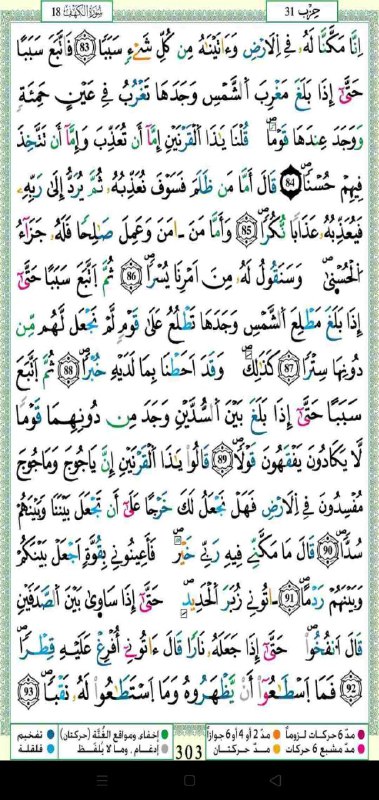 حِزْبُ 31
سُورَةُ الكَهْفِ 18
اِنَّا مَكَّنَّا لَهُۥ فِے اِ۬لَارْضِ وَءَاتَيْنَٰهُ مِن كُلِّ شَےْءٖ سَبَباٗ 83 فَاتَّبَعَ سَبَباً
حَتَّىٰٓ إِذَا بَلَغَ مَغْرِبَ اَ۬لشَّمْسِ وَجَدَهَا تَغْرُبُ فِے عَيْنٍ حَمِئَةٖ
وَوَجَدَ عِندَهَا قَوْماٗۖ قُلْنَا يَٰذَا اَ۬لْقَرْنَيْنِ إِمَّآ أَن تُعَذِّبَ وَإِمَّآ أَن تَتَّخِذَ
فِيهِمْ حُسْناٗۖ 84 قَالَ أَمَّا مَن ظَلَمَ فَسَوْفَ نُعَذِّبُهُۥ ثُمَّ يُرَدُّ إِلَىٰ رَبِّهِۦ
فَيُعَذِّبُهُۥ عَذَاباٗ نُّكُراٗۖ 85 وَأَمَّا مَنَ اٰمَنَ وَعَمِلَ صَٰلِحاٗ فَلَهُۥ جَزَآءُ
اُ۬لْحُسْنَىٰۖ وَسَنَقُولُ لَهُۥ مِنَ اَمْرِنَا يُسْراٗۖ 86 ثُمَّ اَ۪تَّبَعَ سَبَباً حَتَّىٰٓ
إِذَا بَلَغَ مَطْلِعَ اَ۬لشَّمْسِ وَجَدَهَا تَطْلُعُ عَلَىٰ قَوْمٖ لَّمْ نَجْعَل لَّهُم مِّن
دُونِهَا سِتْراٗۖ 87 كَذَٰلِكَۖ وَقَدَ اَحَطْنَا بِمَا لَدَيْهِ خُبْراٗۖ 88 ثُمَّ اَ۪تَّبَعَ
سَبَباً حَتَّىٰٓ إِذَا بَلَغَ بَيْنَ اَ۬لسُّدَّيْنِ وَجَدَ مِن دُونِهِمَا قَوْماٗ
لَّا يَكَادُونَ يَفْقَهُونَ قَوْلاٗۖ 89 قَالُواْ يَٰذَا اَ۬لْقَرْنَيْنِ إِنَّ يَاجُوجَ وَمَاجُوجَ
مُفْسِدُونَ فِے اِ۬لَارْضِ فَهَلْ نَجْعَلُ لَكَ خَرْجاً عَلَىٰٓ أَن تَجْعَلَ بَيْنَنَا وَبَيْنَهُمْ
سُدّاٗۖ 90 قَالَ مَا مَكَّنِّے فِيهِ رَبِّے خَيْرٞۖ فَأَعِينُونِے بِقُوَّةٍ اَجْعَلْ بَيْنَكُمْ
وَبَيْنَهُمْ رَدْماًۖ 91 اٰتُونِے زُبَرَ اَ۬لْحَدِيدِۖ حَتَّىٰٓ إِذَا سَاوَىٰ بَيْنَ اَ۬لصَّدَفَيْنِ
قَالَ اَ۟نفُخُواْۖ حَتَّىٰٓ إِذَا جَعَلَهُۥ نَاراٗ قَالَ ءَاتُونِےٓ أُفْرِغْ عَلَيْهِ قِطْراٗۖ
92 فَمَا اَ۪سْطَٰعُوٓاْ أَنْ يَّظْهَرُوهُ وَمَا اَ۪سْتَطَٰعُواْ لَهُۥ نَقْباٗۖ 93
مدّ 6 حركات لزوماً مدّ 2 أو 4 أو 6 جوازاً
مدّ مشبع 6 حركات مدّ حركتان
303
إخفاء، ومواقع الغُنَّة (حركتان) تفخيم
إدغام، وما لا يُلفَظ قلقلة